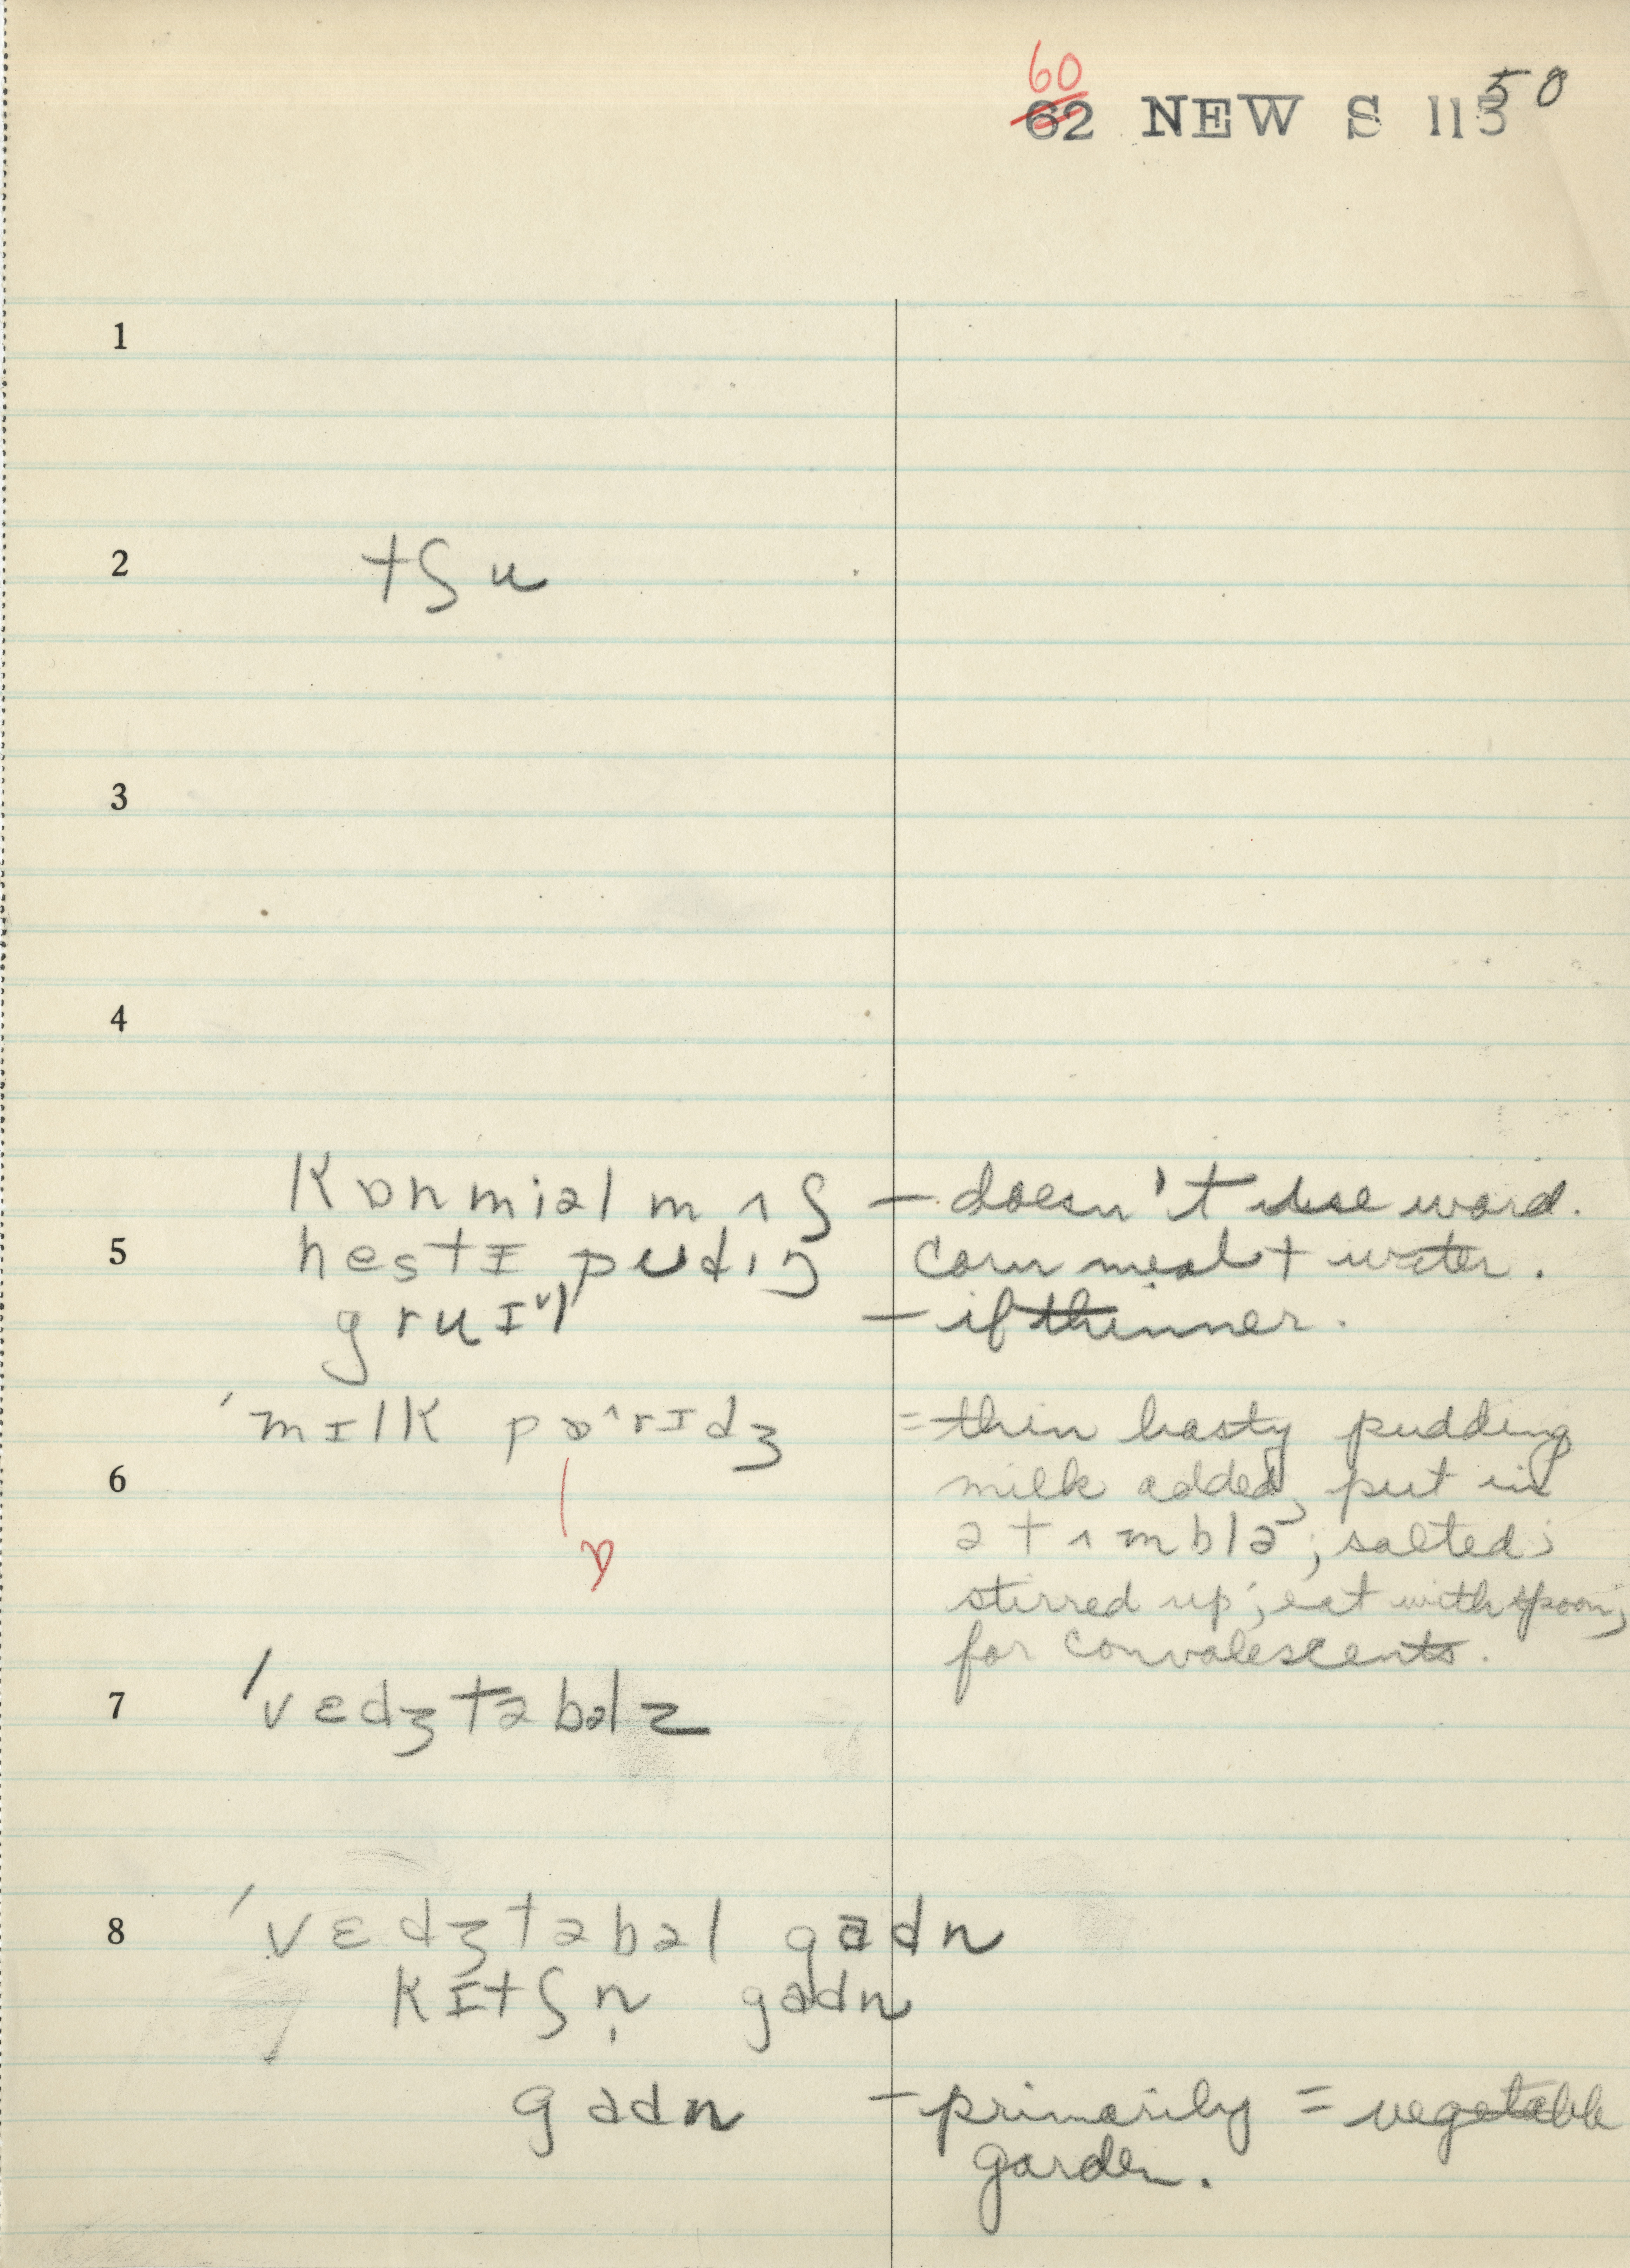 60
62 NEW S 113 50
1
2 tʃu
3
4
kɒnmiəl mʌʃ — doesn't use word.
5 hestɪ pudɪŋ corn meal + water.
gruɪl — if thinner.
ˈmɪlk pɒ^rɪdʒ = thin hasty pudding
6 milk added, put in
ə tʌmblə; salted;
ɒ stirred up; eat with spoon;
for convalescents.
7 ˈvɛdʒtəbəlz
8 ˈvɛdʒtəbəl gadn
kɪtʃn̩ gadn
gadn — primarily = vegetable
garden.